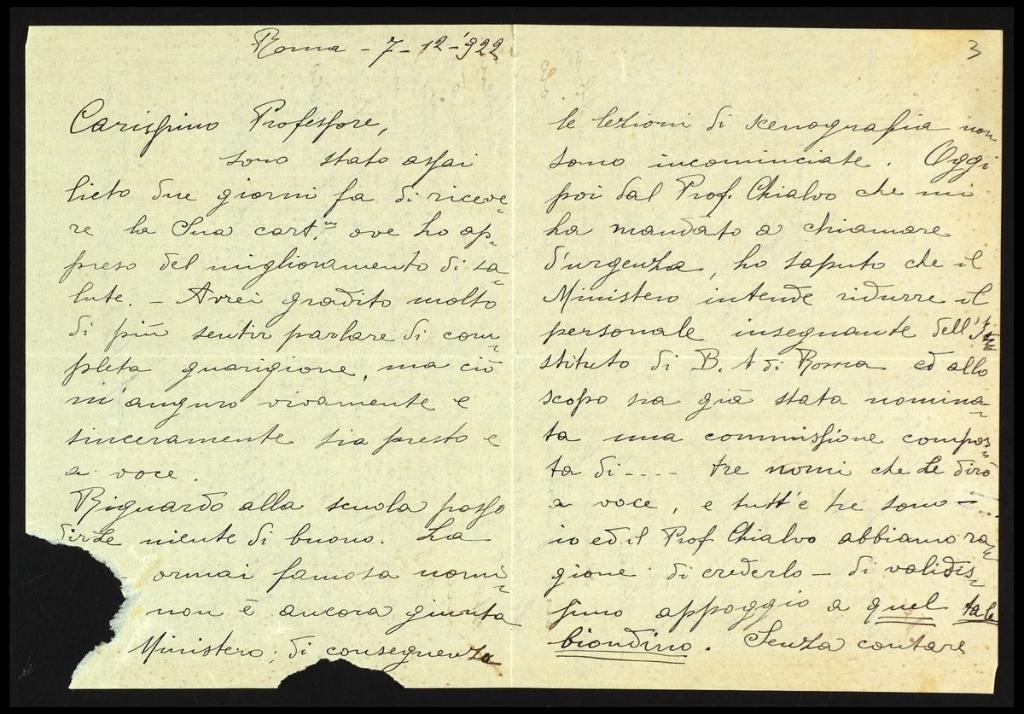 Roma - 7-12-'922
Carissimo Professore,
sono stato assai
lieto due giorni fa di riceve=
re la Sua cart.na ove ho ap=
preso del miglioramento di sa
lute. - Avrei gradito molto
di più sentir parlare di com=
pleta guarigione, ma ciò
m'auguro vivamente e
sinceramente sia presto e
a voce.
Riguardo alla scuola posso
dirLe niente di buono. La
ormai famosa nomi=
non è ancora giunta
Ministero; di conseguenza
3
le lezioni di scenografia non
sono incominciate. Oggi
poi dal Prof. Chialvo che mi
ha mandato a chiamare
d'urgenza, ho saputo che il
Ministero intende ridurre il
personale insegnante dell'I=
stituto di B. A di Roma ed allo
scopo sia già stata nomina=
ta una commissione compos=
ta di .... tre nomi che Le dirò
a voce, e tutt'e tre sono -
io ed il Prof. Chialvo abbiamo ra=
gione di crederlo - di validis=
simo appoggio a quel tale
biondino. Senza contare